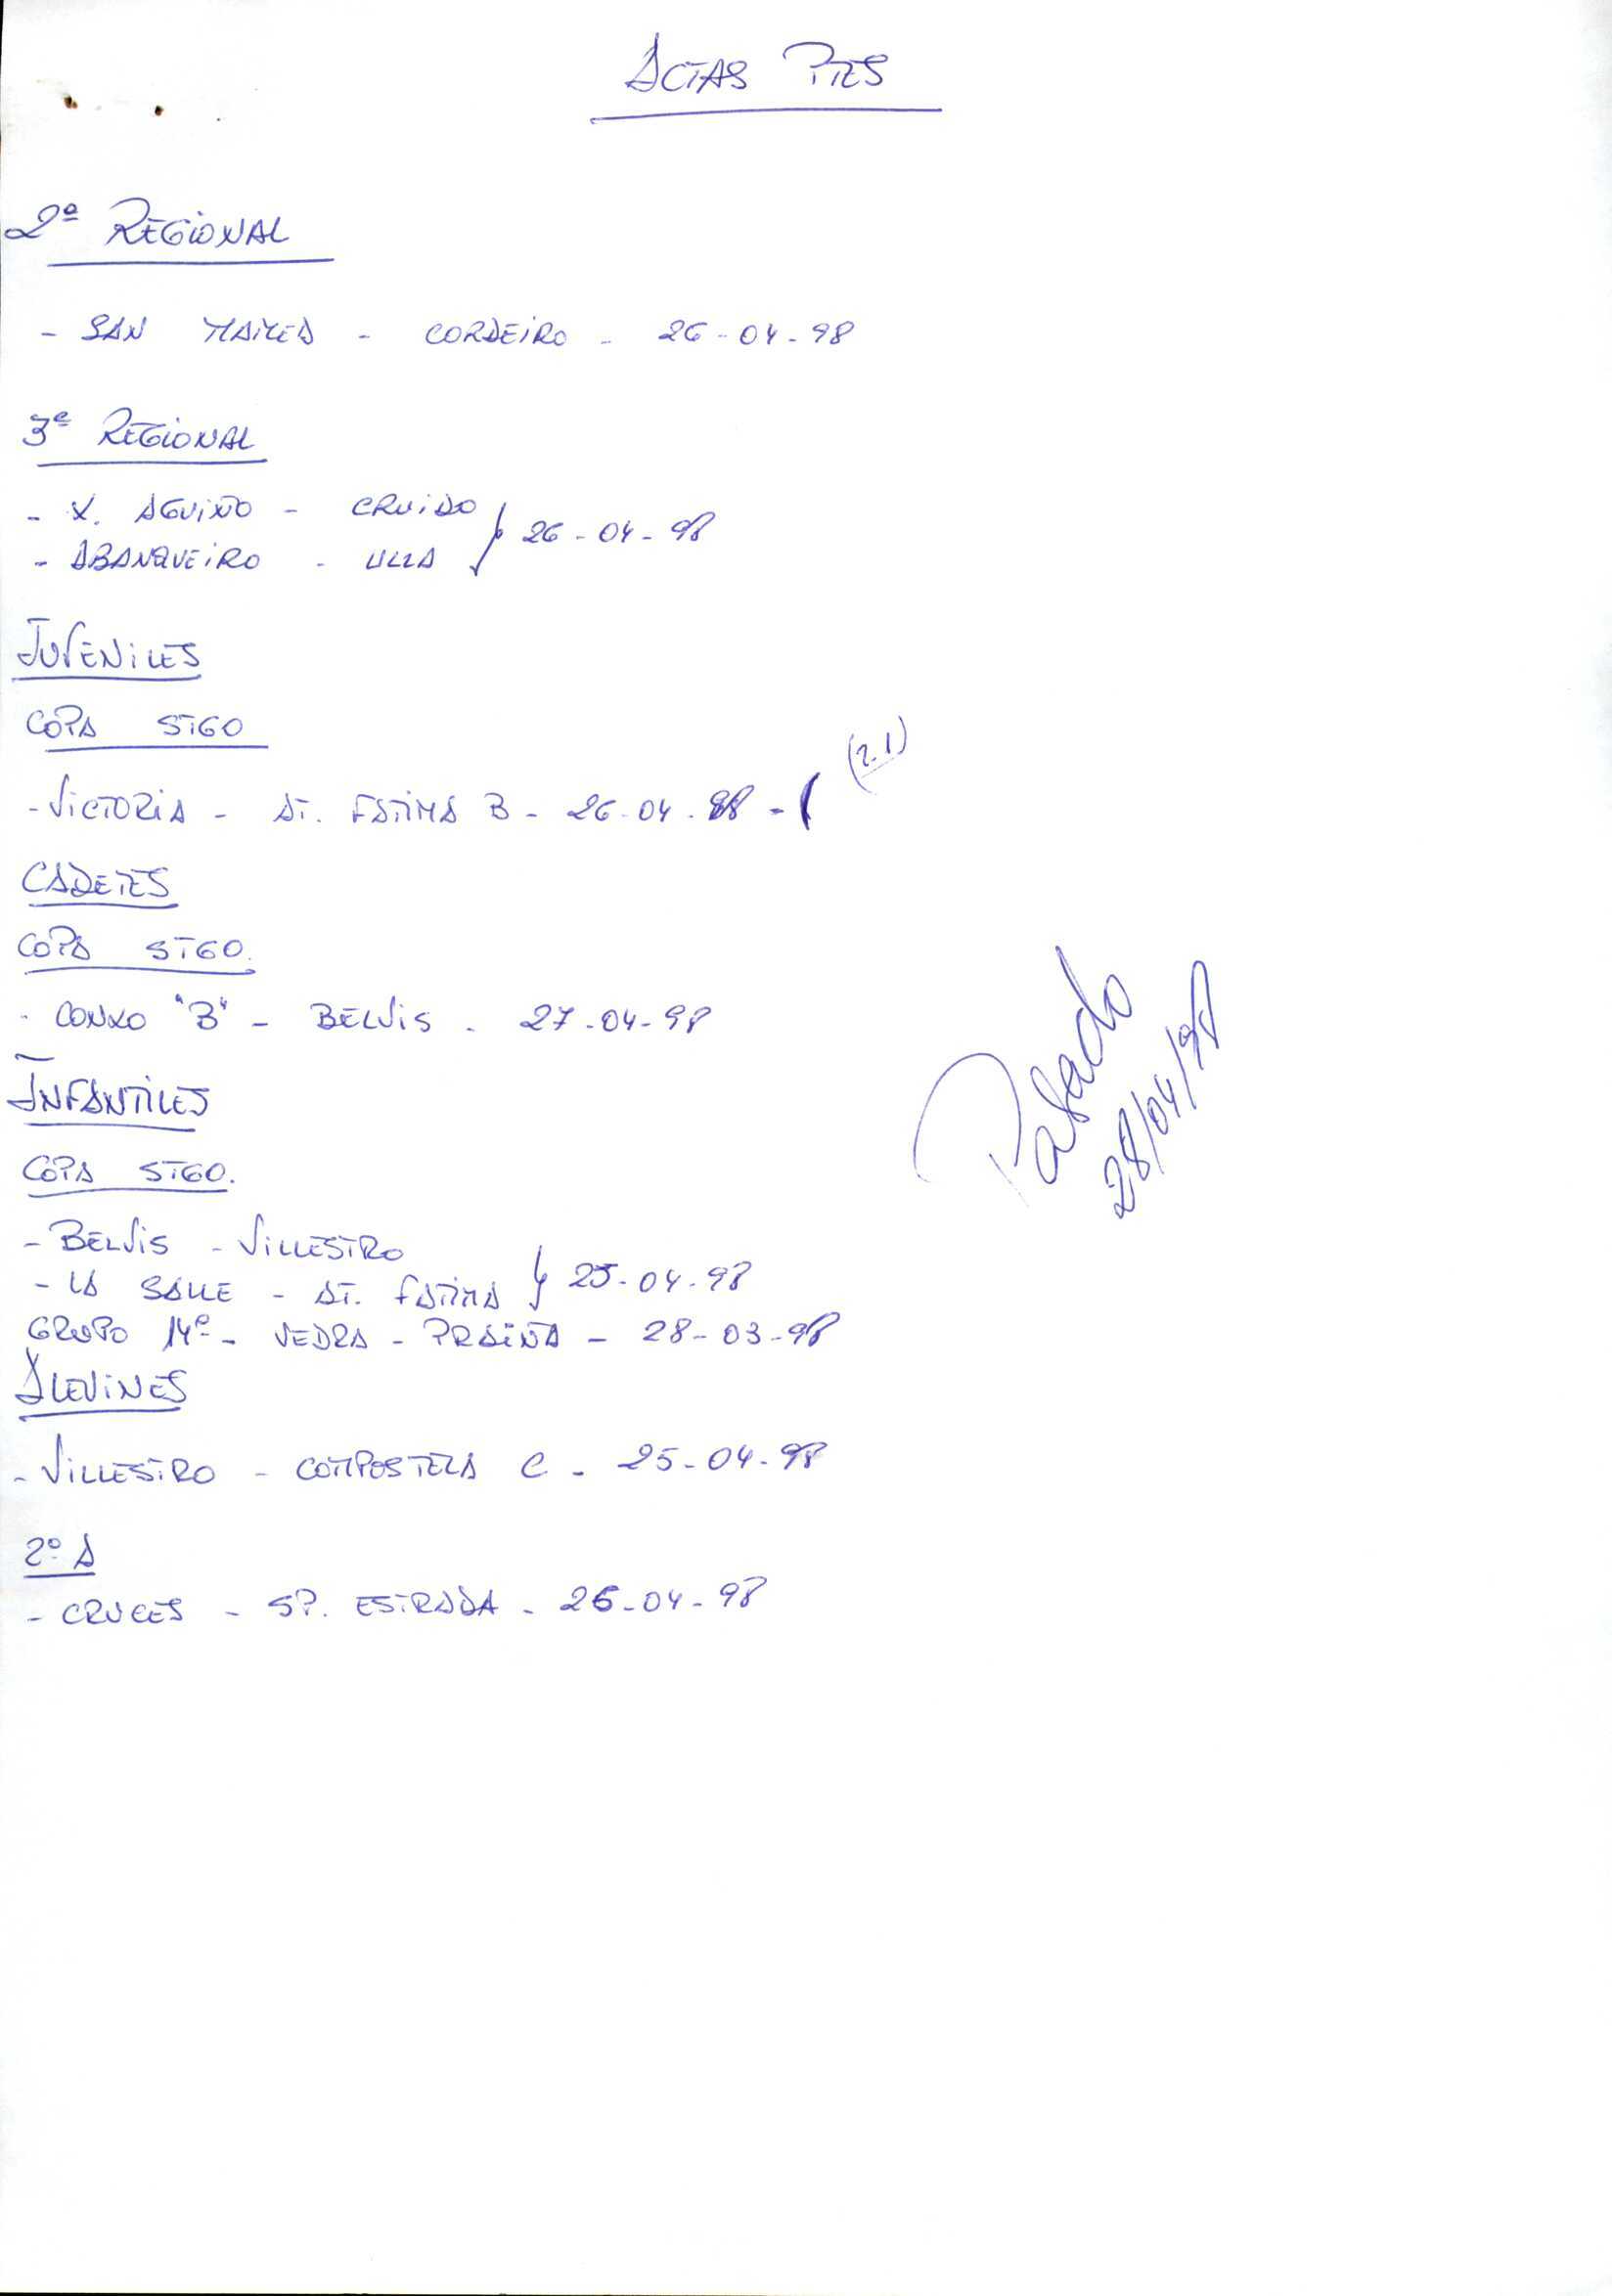 ACTAS PTES
2ª REGIONAL
- SAN MAMED - CORDEIRO - 26-04-98
3ª REGIONAL
- X. AGUIÑO - CRUIDO
- ABANQUEIRO - ULLA } 26-04-98
JUVENILES
COPA STGO
- VICTORIA - AT. FATIMA B - 26-04-98 - (
(2-1)
CADETES
COPA STGO.
- CONXO "B" - BELVIS - 27-04-98
INFANTILES
COPA STGO.
- BELVIS - VILLESTRO
- LA SALLE - AT. FATIMA } 25-04-98
GRUPO 14º - VEDRA - PRAIÑA - 28-03-98
ALEVINES
- VILLESTRO - COMPOSTELA C - 25-04-98
2º A
- CRUCES - SP. ESTRADA - 26-04-98
Pasado
28/04/98